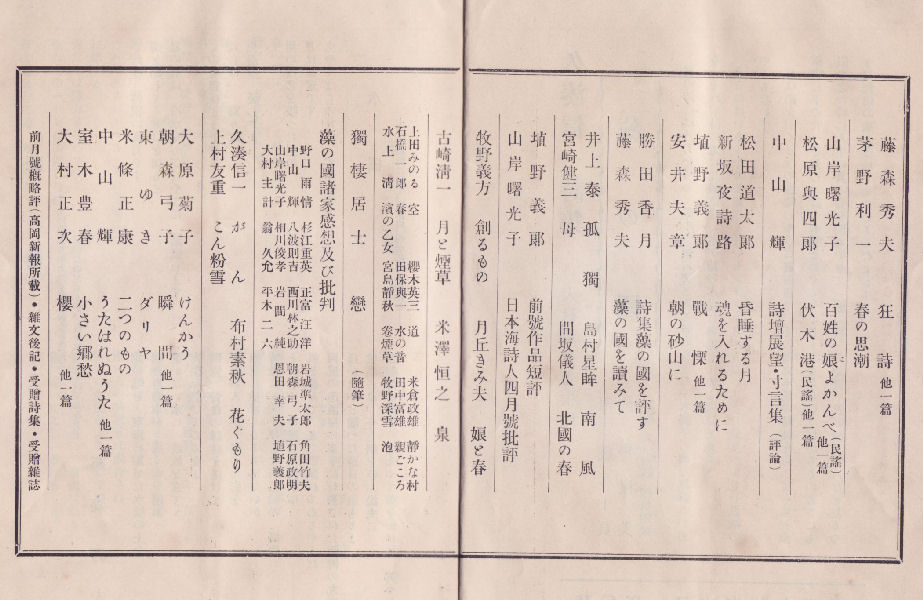 藤森秀夫 狂詩 他一篇
茅野利一 春の思潮
山岸曙光子 百姓の娘よかんべ（民謠）他一篇
松原與四郞 伏木港（民謠）他一篇
中山輝 詩壇展望・寸言集（評論）
松田道太郞 昏睡する月
新坂夜詩路 魂を入れるために
埴野義郞 戰慄 他一篇
安井夫章 朝の砂山に
勝田香月 詩集藻の國を評す
藤森秀夫 藻の國を讀みて
井上泰孤 獨 島村星眸 南風
宮崎健三 母 間坂儀人 北國の春
埴野義郞 前號作品短評
山岸曙光子 日本海詩人四月號批評
牧野義方 創るもの 月丘きみ夫 娘と春
古崎淸一 月と煙草 米澤恒之 泉
上田みのる 空 櫻木英三 道 米倉政雄 靜かな村
石橋一郞 春 田保與一 水の音 田中富雄 親ごころ
水上淸 濱の乙女 宮島靜秋 卷煙草 牧野深雪 泡
獨棲居士 戀（隨筆）
藻の國諸家感想及び批判
野口雨情 杉江重英 正富汪洋 岩城凖太郞 角田竹夫
中山輝 八波則吉 西川林之助 朝森弓子 石原政明
山岸曙光子 相川俊孝 岩間純 恩田幸夫 埴野義郞
大村主計 翁久允 平木二六
久湊信一 がん 布村素秋 花ぐもり
上村友重 こん粉雪
大原菊子 けんかう
朝森弓子 瞬間 他一篇
東ゆき ダリヤ
米條正康 二つのもの
中山輝 うたはれぬうた 他一篇
室木豊春 小さい鄕愁
大村正次 櫻 他一篇
前月號槪略評（高岡新報所載）・雜文後記・受贈詩集・受贈雜誌